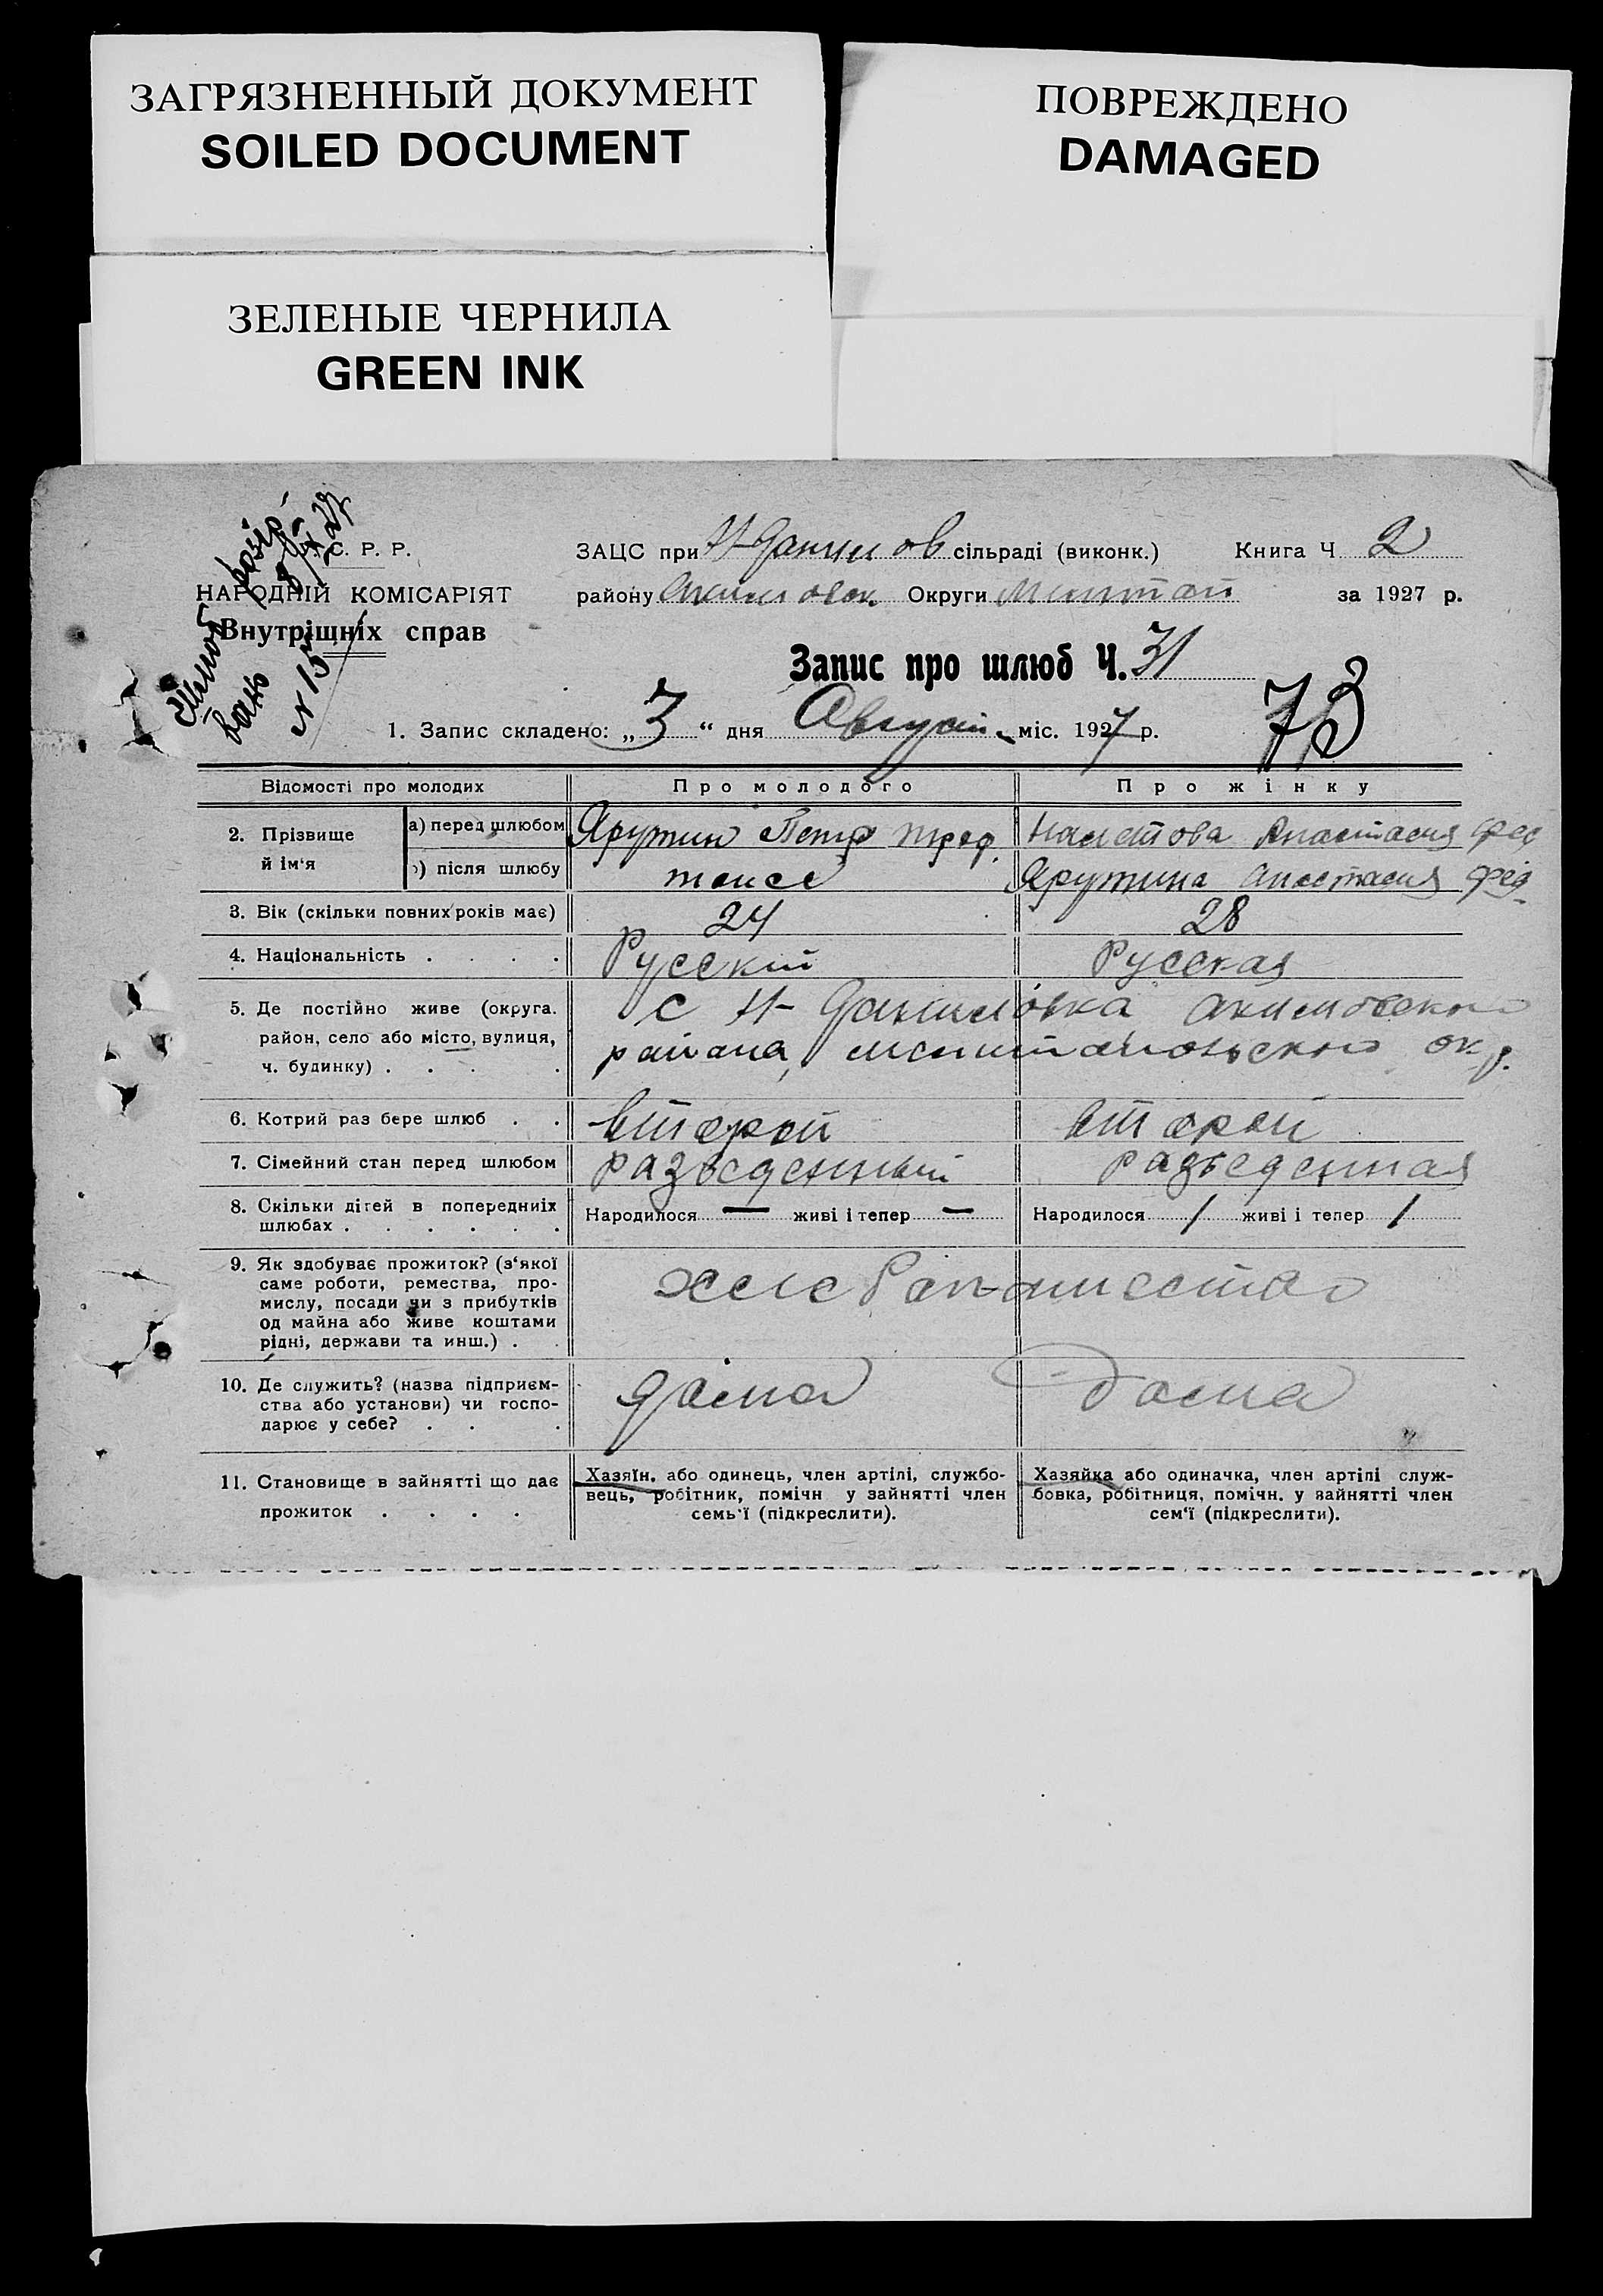 ЗАГРЯЗНЕННЫЙ ДОКУМЕНТ
SOILED DOCUMENT
ПОВРЕЖДЕНО
DAMAGED
ЗЕЛЕНЫЕ ЧЕРНИЛА
GREEN INK
С. Р. Р.
НАРОДНІЙ КОМІСАРІЯТ
Внутрішніх справ
№ 15
ЗАЦС при Н-Данилов сільраді (виконк.) Книга Ч 2
району Акимовск Округи Мелитоп за 1927 р.
Запис про шлюб Ч. 31
73
1. Запис складено: „ 3 “ дня Август міс. 1927 р.
Відомості про молодих Про молодого Про жінку
2. Прізвище й ім‘я
а) перед шлюбом Яружин Петр Анастасия
) після шлюбу тоисе Яружина Анастасия Фед.
3. Вік (скільки повних років має) 24 28
4. Національність . . . . Русский Русская
5. Де постійно живе (округа. с Н-Даниловка Акимовского
район, село або місто, вулиця, района, Мелитопольского окр.
ч. будинку) . . . .
6. Котрий раз бере шлюб . . второй второй
7. Сімейний стан перед шлюбом разведенный разведенная
8. Скільки дітей в попередниіх
шлюбах . . . . . . Народилося — живі і тепер — Народилося 1 живі і тепер 1
9. Як здобуває прожиток? (з‘якої
саме роботи, ремества, про-
мислу, посади чи з прибутків
од майна або живе коштами
рідні, держави та инш.) . .
хлебопашество
10. Де служить? (назва підприєм-
ства або установи) чи госпо-
дарює у себе? . . .
дома дома
11. Становище в зайнятті що дає
прожиток . . . .
Хазяїн, або одинець, член артілі, службо-
вець, робітник, помічн у зайнятті член
семь‘ї (підкреслити).
Хазяйка або одиначка, член артілі служ-
бовка, робітниця, помічн. у зайнятті член
сем‘ї (підкреслити).